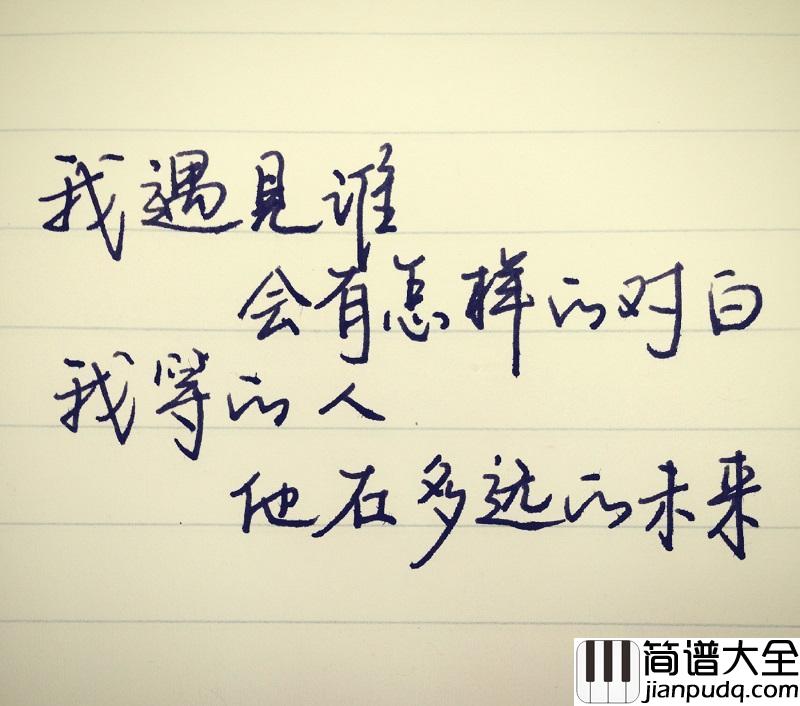 我遇見谁
会有怎样的对白
我等的人
他在多远的未来
简谱大全
jianpudq.com